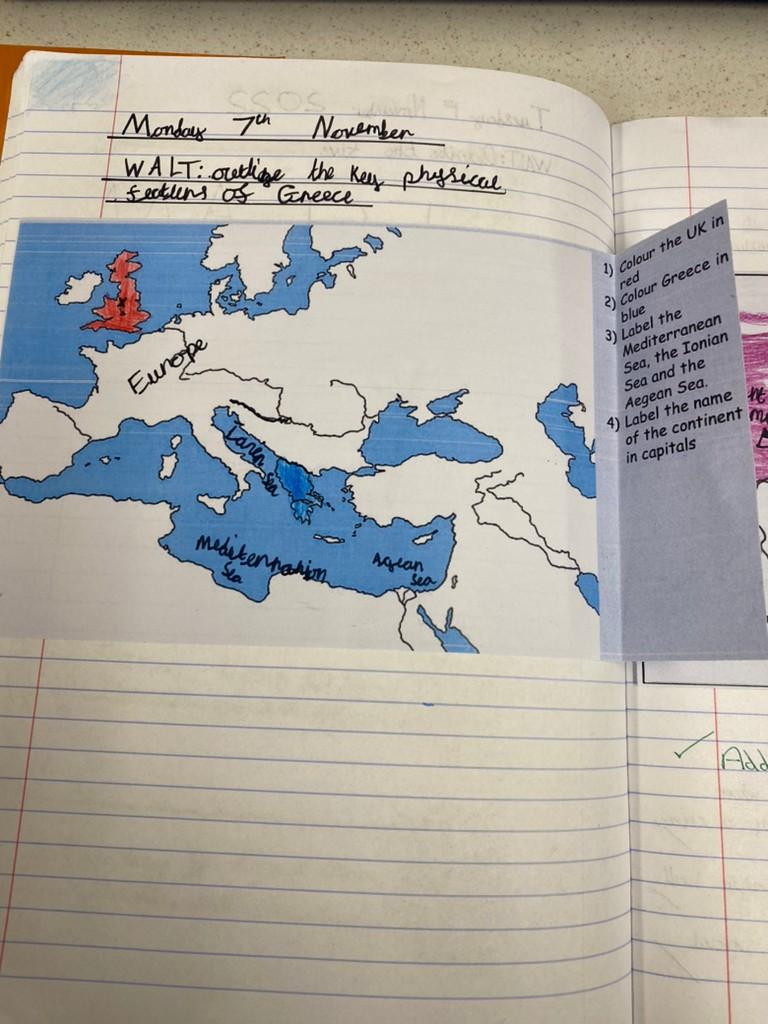 Monday 7th November
WALT: outline the key physical
features of Greece
Europe
Ionian
Sea
Mediterranean
Sea
Aegean
Sea
1) Colour the UK in
red
2) Colour Greece in
blue
3) Label the
Mediterranean
Sea, the Ionian
Sea and the
Aegean Sea.
4) Label the name
of the continent
in capitals
✓ Add